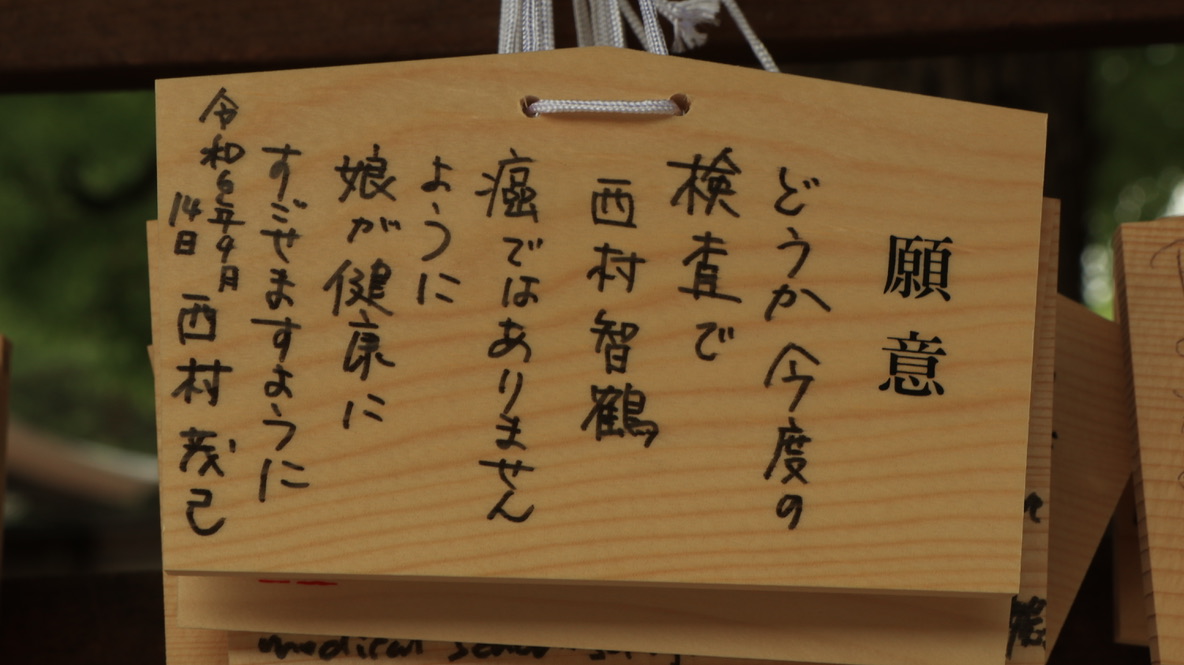 願意
どうか今度の
検査で
西村智鶴
癌ではありません
ように
娘が健康に
すごせますように
令和6年9月
14日
西村茂己
medical